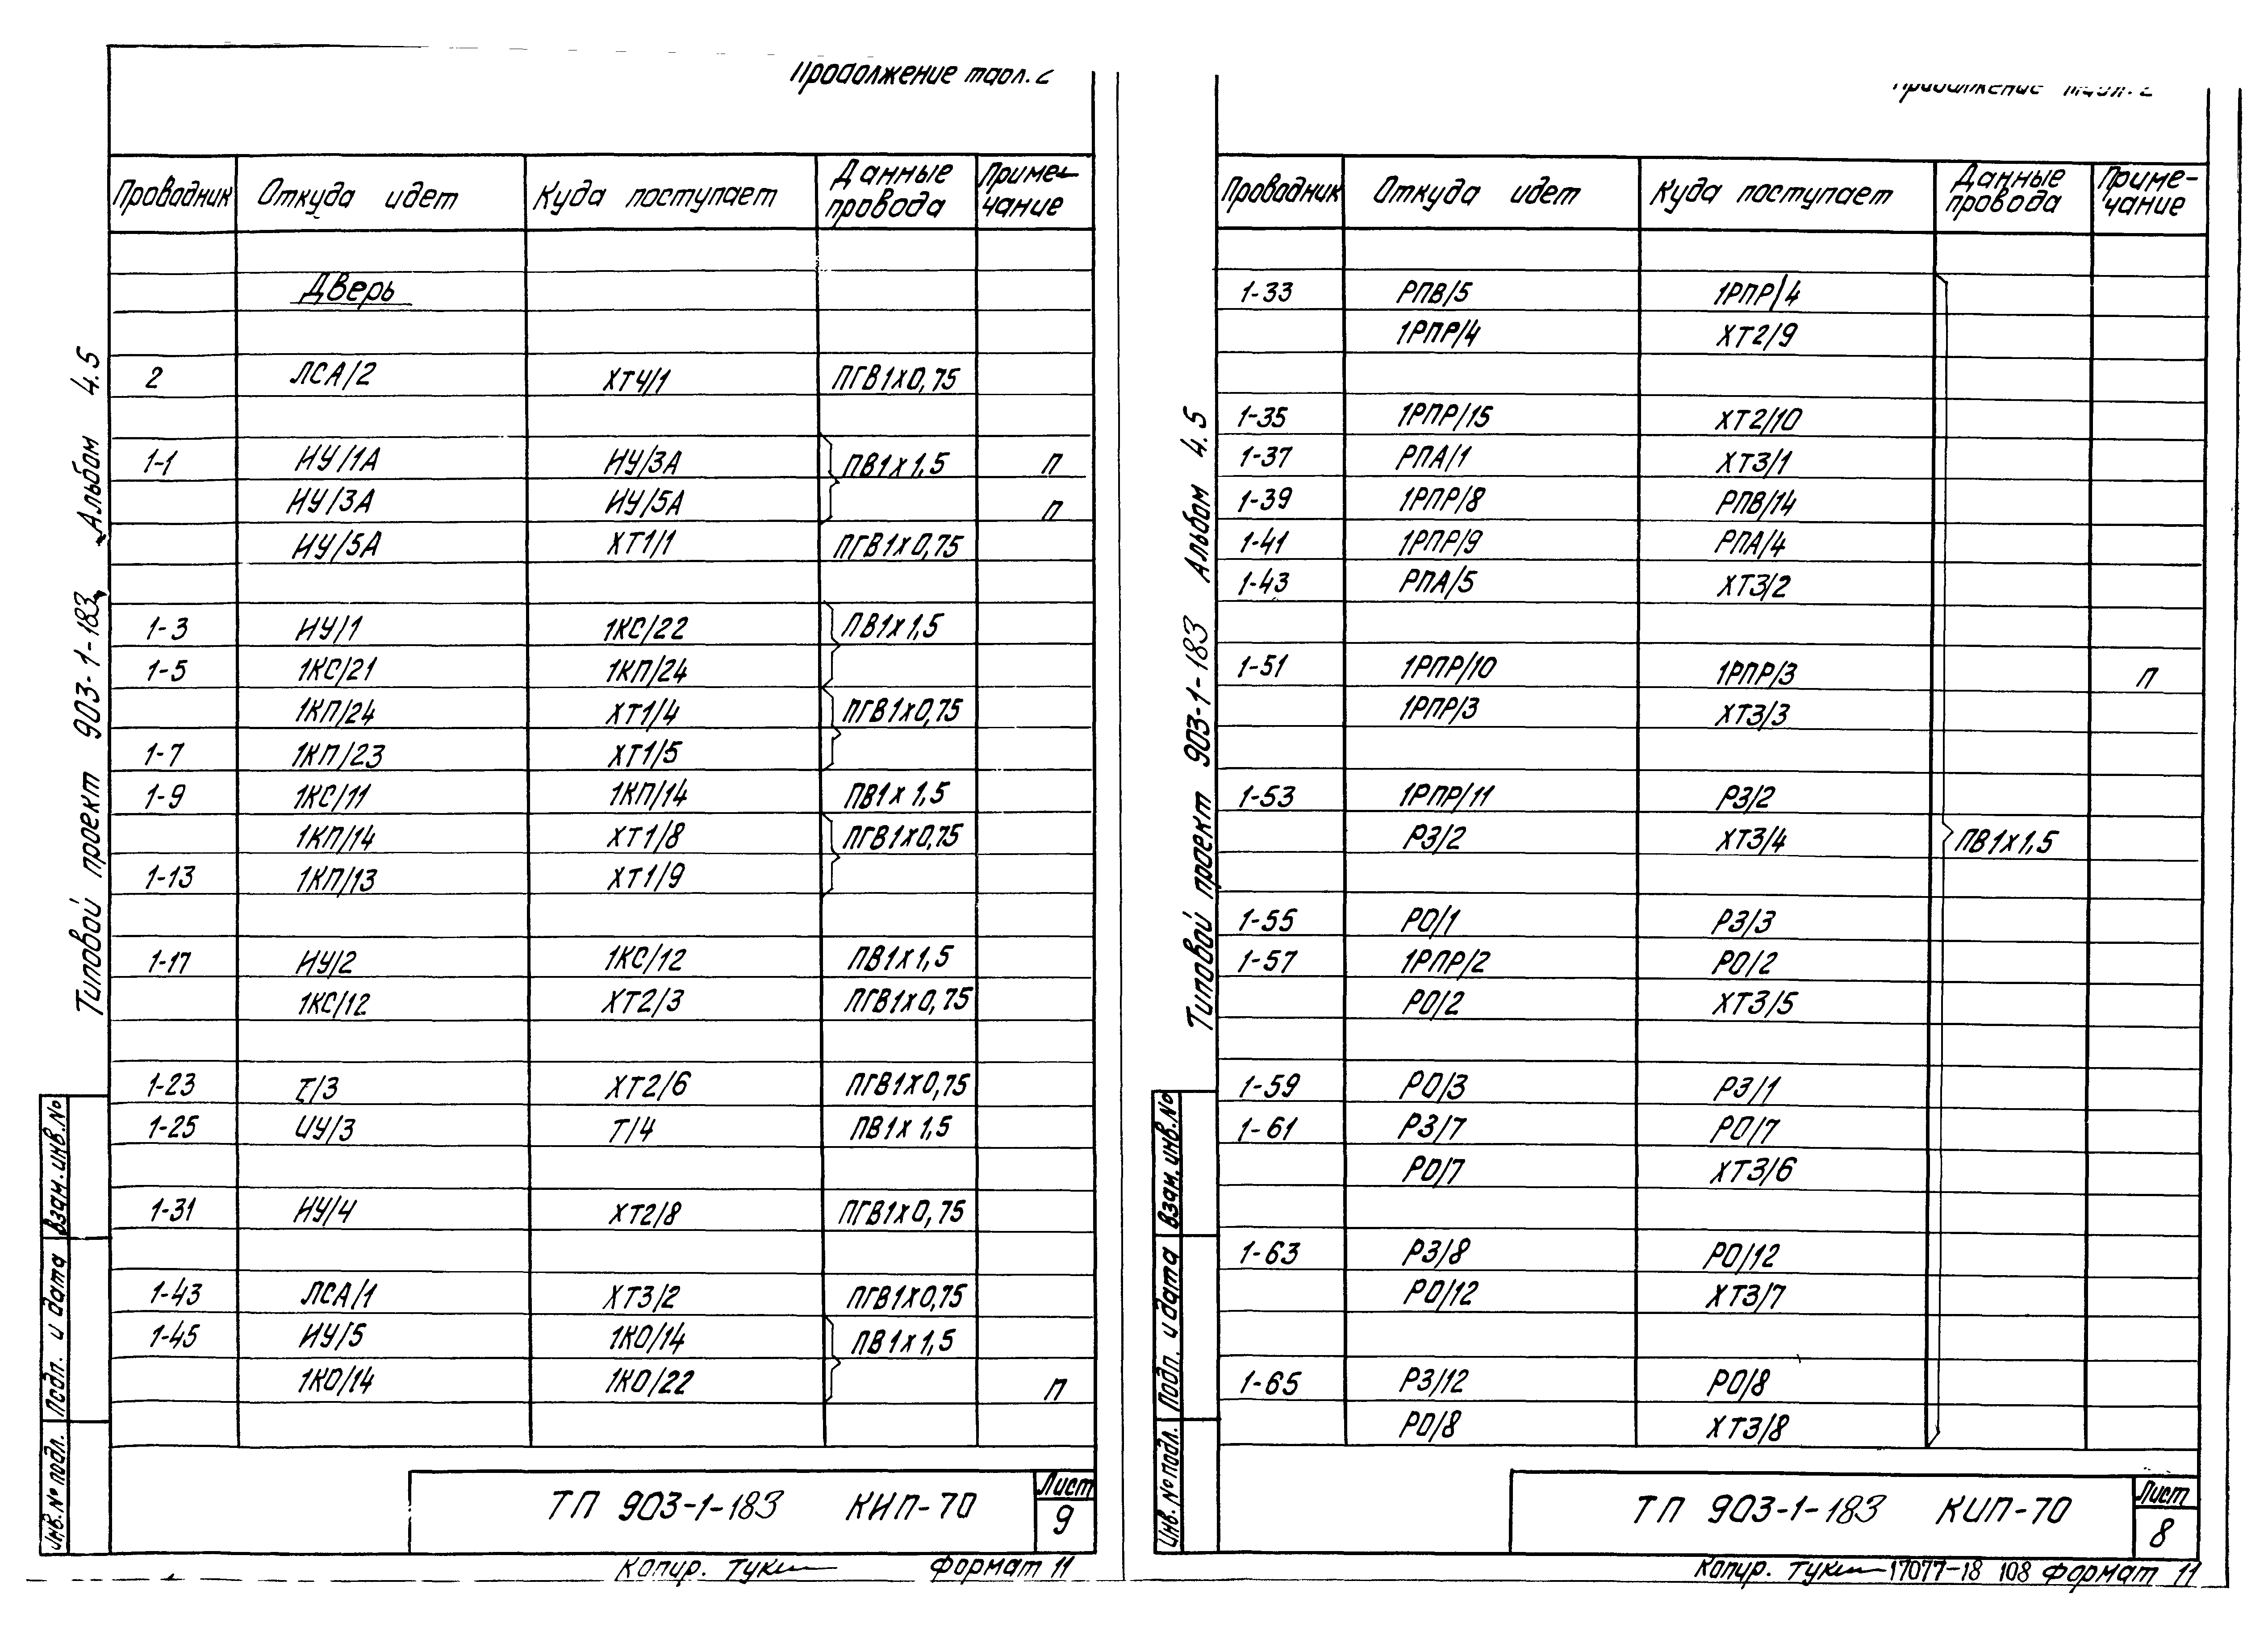 Продолжение табл. 2
Проводник Откуда идет Куда поступает Данные провода Приме- чание
Дверь
2 ЛСА/2 ХТ4/1 ПГВ1х0,75
1-1 ИУ/1А ИУ/3А ПВ1х1,5 П
ИУ/3А ИУ/5А П
ИУ/5А ХТ1/1 ПГВ1х0,75
1-3 ИУ/1 1КС/22 ПВ1х1,5
1-5 1КС/21 1КП/24
1КП/24 ХТ1/4 ПГВ1х0,75
1-7 1КП/23 ХТ1/5
1-9 1КС/11 1КП/14 ПВ1х1,5
1КП/14 ХТ1/8 ПГВ1х0,75
1-13 1КП/13 ХТ1/9
1-17 ИУ/2 1КС/12 ПВ1х1,5
1КС/12 ХТ2/3 ПГВ1х0,75
1-23 Т/3 ХТ2/6 ПГВ1х0,75
1-25 ИУ/3 Т/4 ПВ1х1,5
1-31 ИУ/4 ХТ2/8 ПГВ1х0,75
1-43 ЛСА/1 ХТ3/2 ПГВ1х0,75
1-45 ИУ/5 1КО/14 ПВ1х1,5
1КО/14 1КО/22 П
ТП 903-1-183 КИП-70 Лист 9
Копир. Формат 11
Типовой проект 903-1-183 Альбом 4.5
Взам. инв. №
Подп. и дата
Инв. № подл.
Продолжение табл. 2
Проводник Откуда идет Куда поступает Данные провода Приме- чание
1-33 РПВ/5 1РПР/4
1РПР/4 ХТ2/9
1-35 1РПР/15 ХТ2/10
1-37 РПА/1 ХТ3/1
1-39 1РПР/8 РПВ/14
1-41 1РПР/9 РПА/4
1-43 РПА/5 ХТ3/2
1-51 1РПР/10 1РПР/3 П
1РПР/3 ХТ3/3
1-53 1РПР/11 РЗ/2
РЗ/2 ХТ3/4 ПВ1х1,5
1-55 РО/1 РЗ/3
1-57 1РПР/2 РО/2
РО/2 ХТ3/5
1-59 РО/3 РЗ/1
1-61 РЗ/7 РО/7
РО/7 ХТ3/6
1-63 РЗ/8 РО/12
РО/12 ХТ3/7
1-65 РЗ/12 РО/8
РО/8 ХТ3/8
ТП 903-1-183 КИП-70 Лист 8
Копир. 17077-18 108 Формат 11
Типовой проект 903-1-183 Альбом 4.5
Взам. инв. №
Подп. и дата
Инв. № подл.